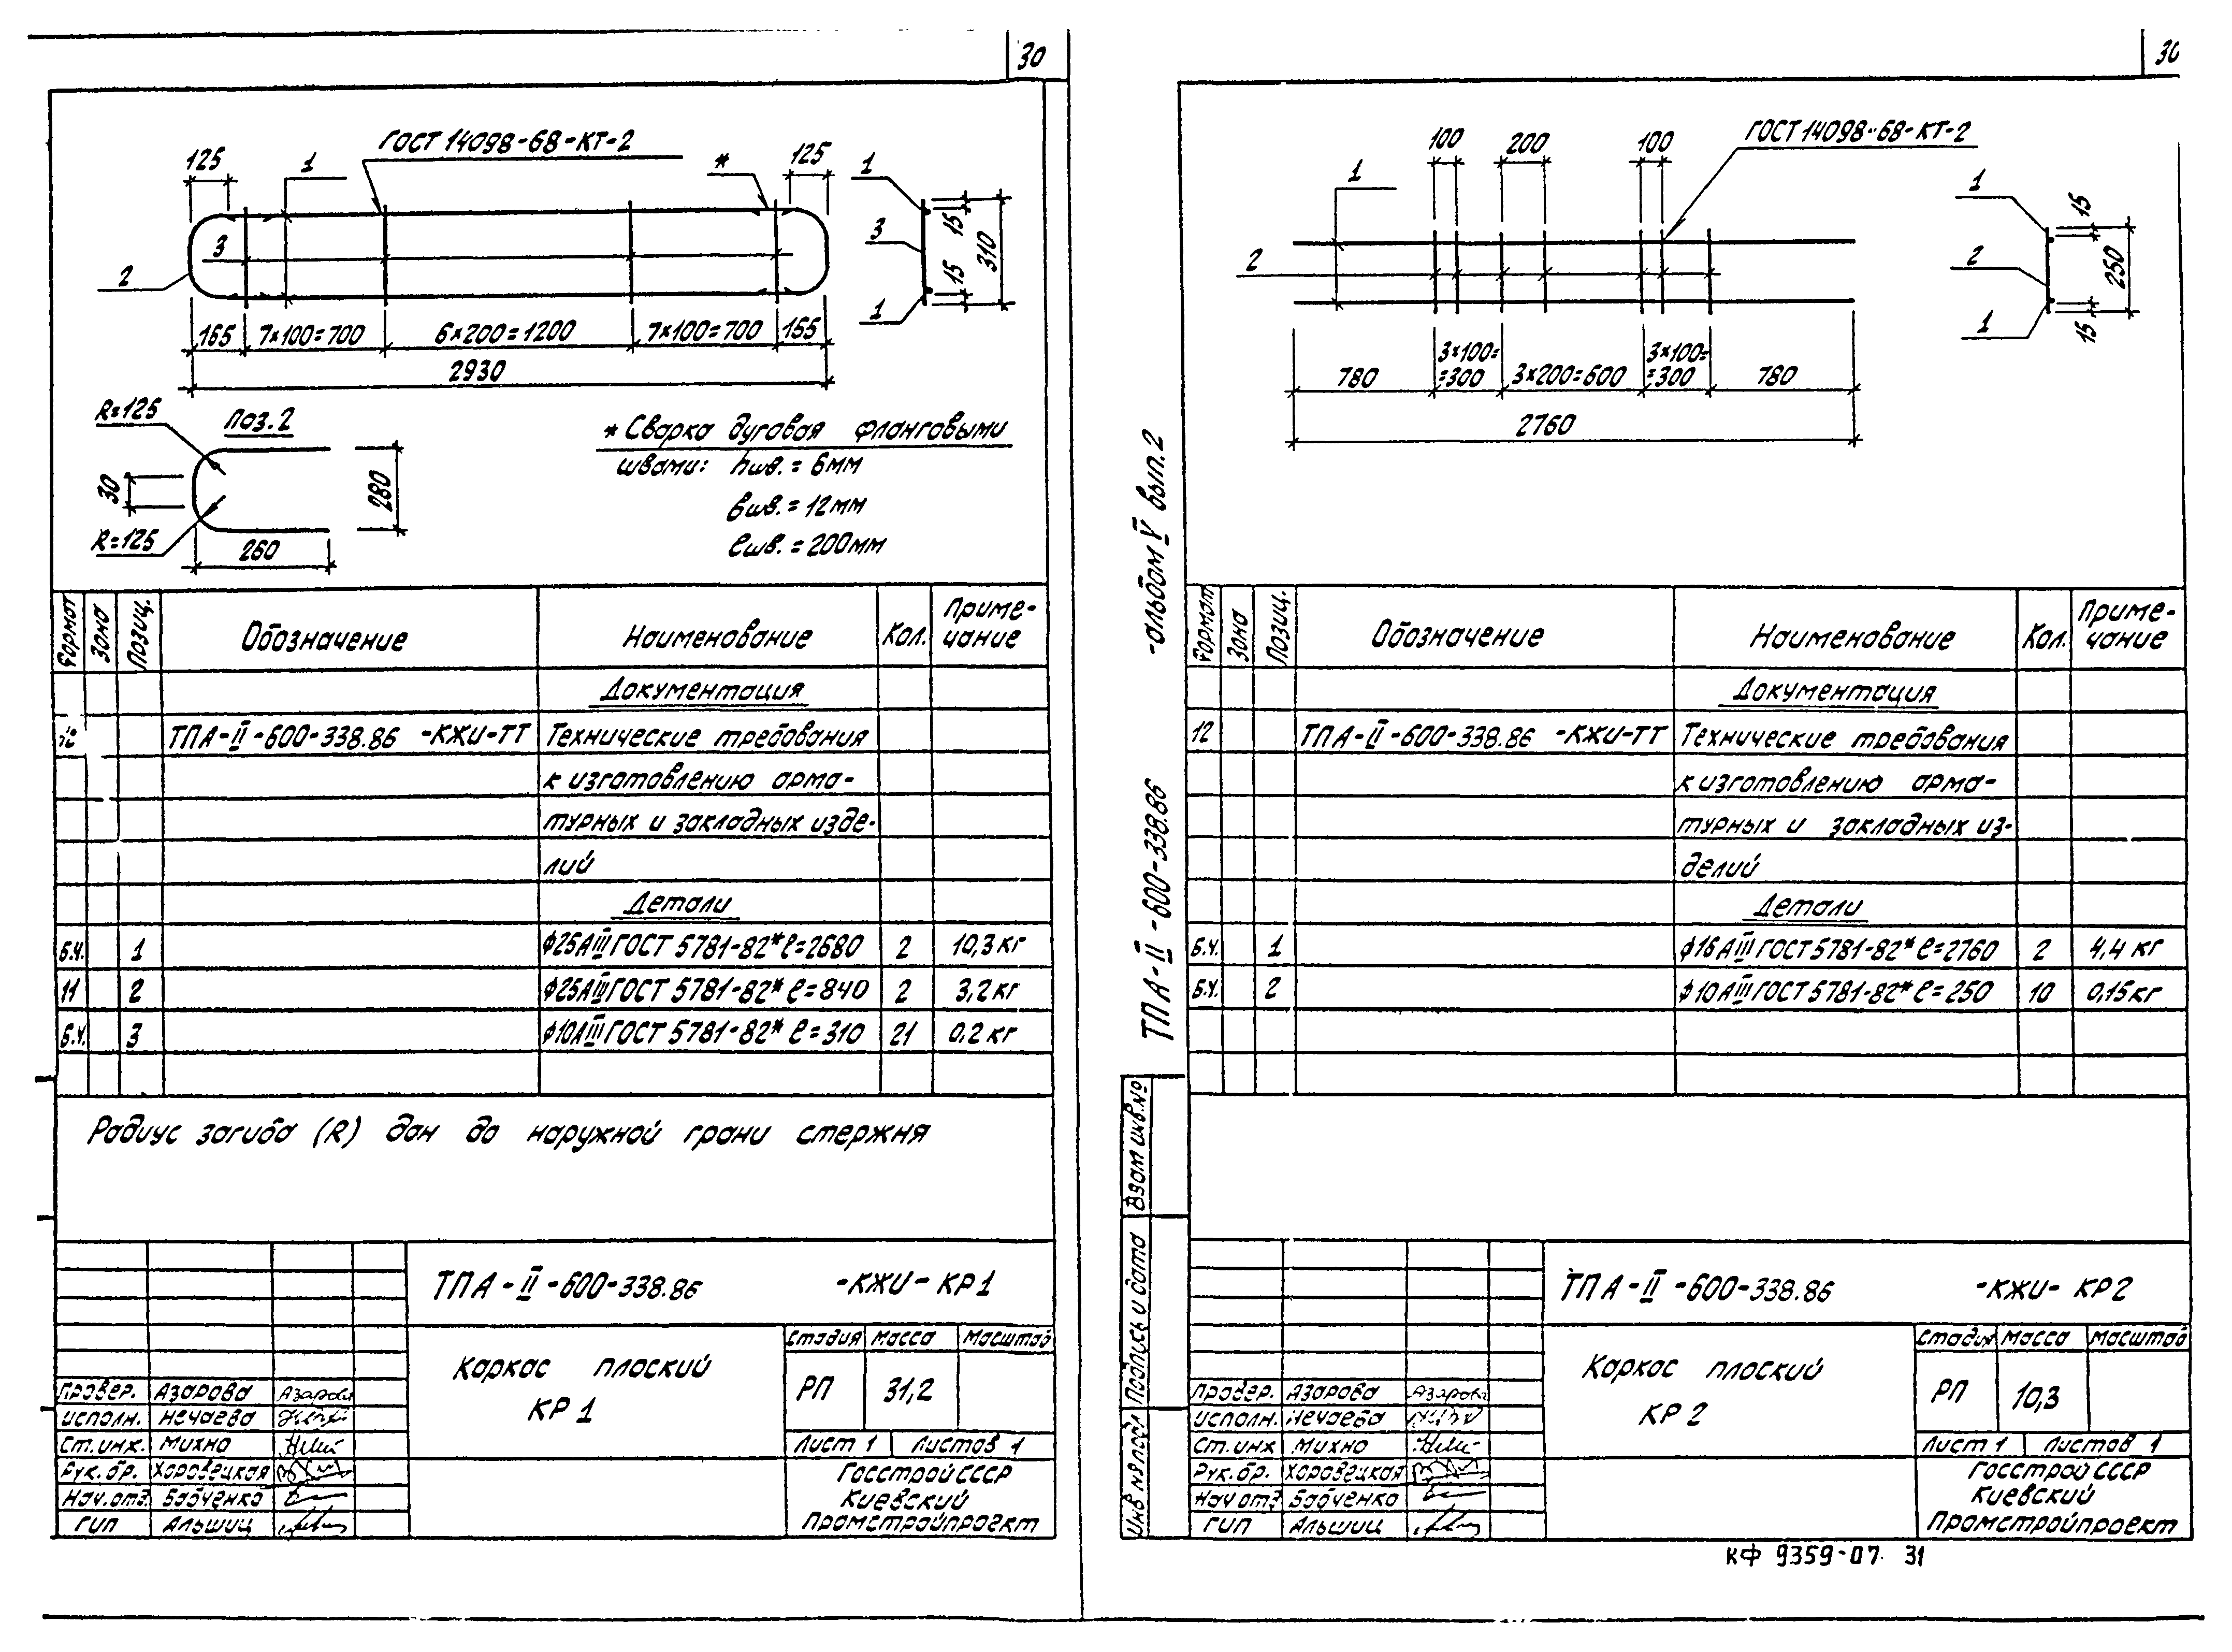 30
ГОСТ 14098-68-КТ-2
125
1
*
125
1
3
2
3
1
15
15
310
165
7×100=700
6×200=1200
7×100=700
165
2930
R=125
Поз.2
30
280
R=125
260
* Сварка дуговая фланговыми
швами: hшв. = 6мм
bшв. = 12мм
ℓшв. = 200мм
Формат
Зона
Позиц.
Обозначение
Наименование
Кол.
Приме-
чание
Документация
12 ТПА-II-600-338.86 -КЖИ-ТТ Технические требования
к изготовлению арма-
турных и закладных изде-
лий
Детали
Б.Ч. 1 ф25АIII ГОСТ 5781-82* ℓ=2680 2 10,3 кг
11 2 ф25АIII ГОСТ 5781-82* ℓ=840 2 3,2 кг
Б.Ч. 3 ф10АIII ГОСТ 5781-82* ℓ=310 21 0,2 кг
Радиус загиба (R) дан до наружной грани стержня
ТПА-II-600-338.86 -КЖИ- КР1
Каркас плоский
КР1
Стадия Масса Масштаб
РП 31,2
Лист 1 Листов 1
Госстрой СССР
Киевский
Промстройпроект
Провер. Азарова
Исполн. Нечаева
Ст.инж. Михно
Рук.бр. Хоровецкая
Нач.отд. Бабченко
ГИП Альшиц
30
100
200
100
ГОСТ 14098-68-КТ-2
1
2
1
2
1
15
15
250
780
3×100=
=300
3×200=600
3×100=
=300
780
2760
ТПА-II-600-338.86 -альбом V вып.2
Формат
Зона
Позиц.
Обозначение
Наименование
Кол.
Приме-
чание
Документация
12 ТПА-II-600-338.86 -КЖИ-ТТ Технические требования
к изготовлению арма-
турных и закладных из-
делий
Детали
Б.Ч. 1 ф16АIII ГОСТ 5781-82* ℓ=2760 2 4,4 кг
Б.Ч. 2 ф10АIII ГОСТ 5781-82* ℓ=250 10 0,15кг
Взам инв.№
Подпись и дата
Инв № подл
ТПА-II-600-338.86 -КЖИ- КР2
Каркас плоский
КР2
Стадия Масса Масштаб
РП 10,3
Лист 1 Листов 1
Госстрой СССР
Киевский
Промстройпроект
Провер. Азарова
Исполн. Нечаева
Ст.инж Михно
Рук.бр. Хоровецкая
Нач отд Бабченко
ГИП Альшиц
КФ 9359-07 31